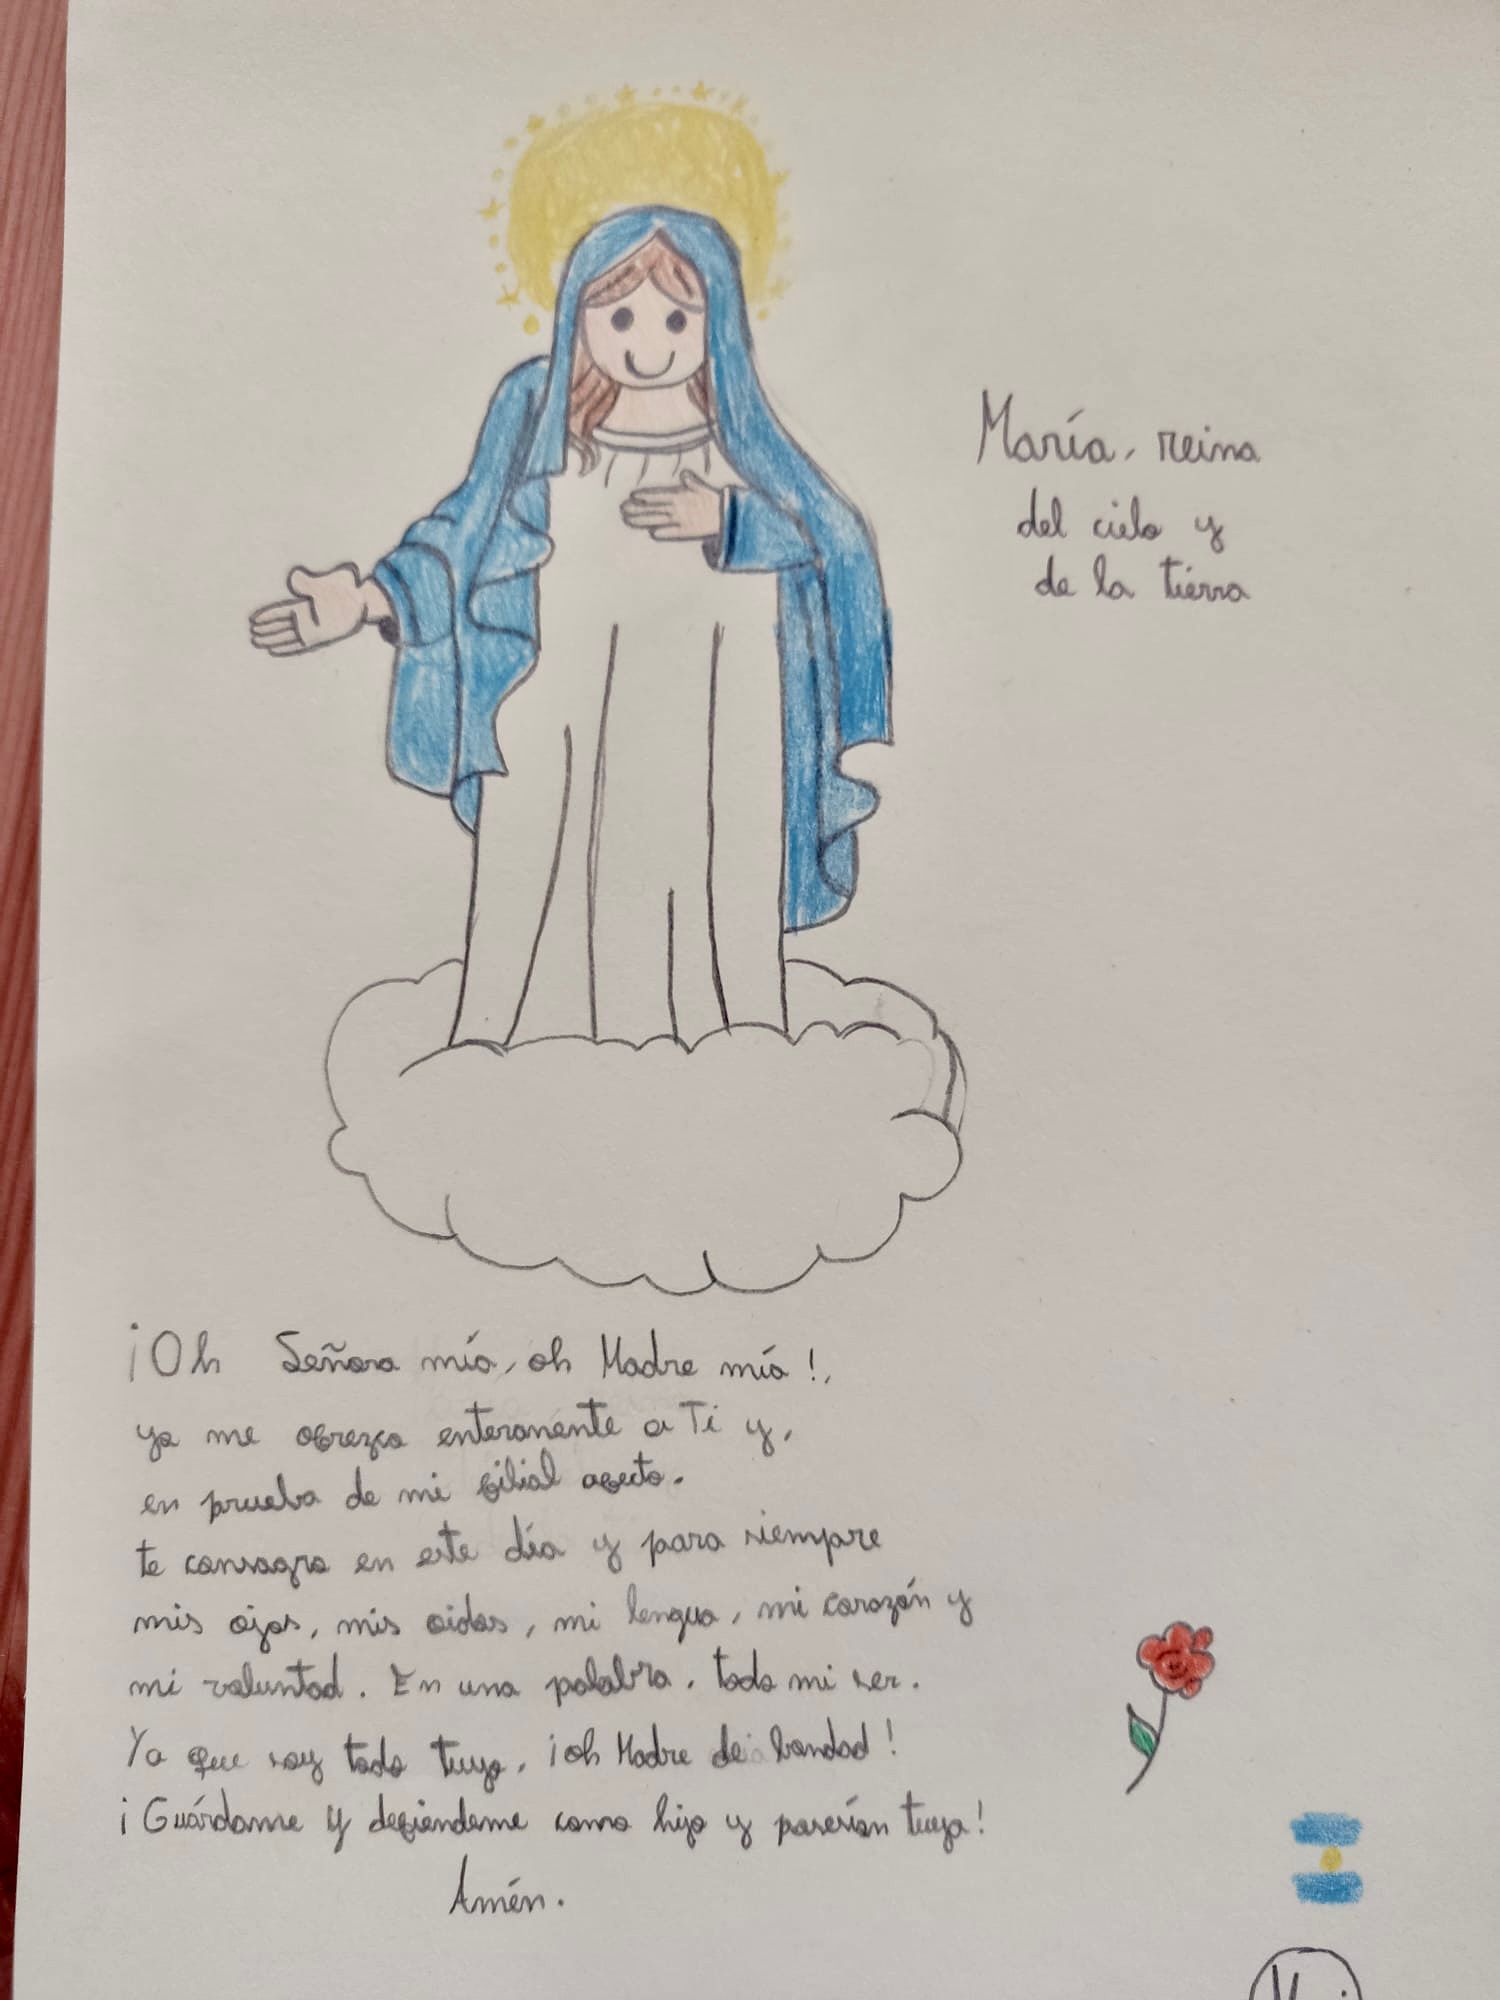 María, reina
del cielo y
de la tierra
¡Oh Señora mía, oh Madre mía!,
yo me ofrezco enteramente a Ti y,
en prueba de mi filial afecto.
te consagro en este día y para siempre
mis ojos, mis oidos, mi lengua, mi corazón y
mi voluntad. En una palabra, todo mi ser.
Ya que soy todo tuyo, ¡oh Madre de bondad!
¡Guárdame y defiendeme como hijo y tuyo!
Amén.